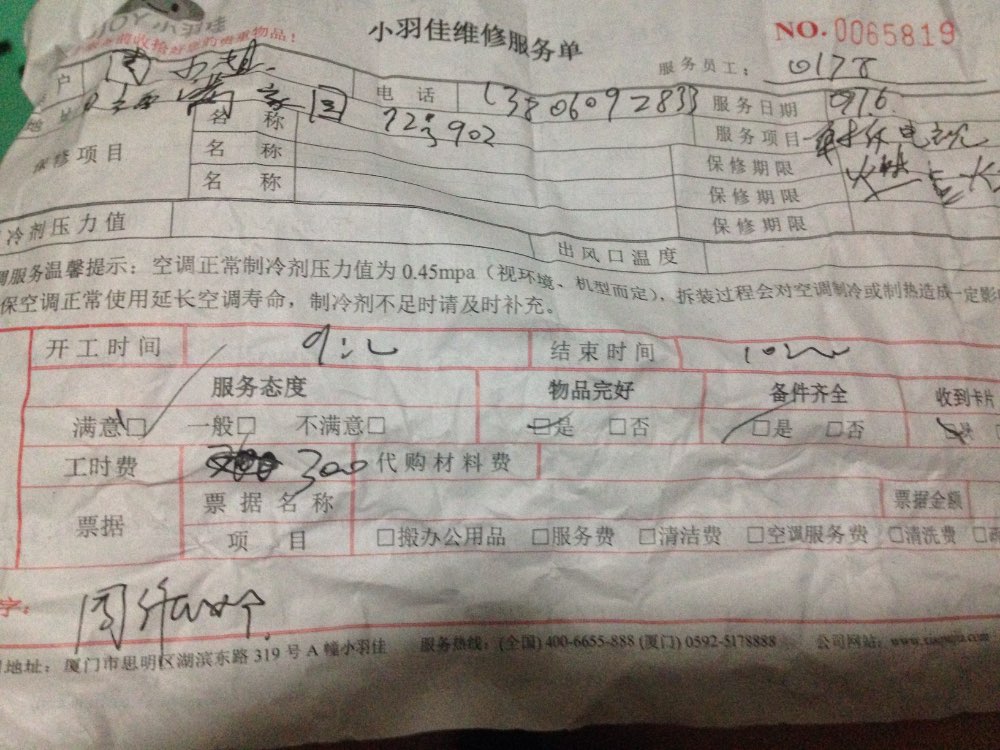 小羽佳
收拾好您的贵重物品！
小羽佳维修服务单
NO. 0065819
服务员工： 0178
户 周小姐 电话 13806092833 服务日期 0976
地址
名称 723902 服务项目 电视
保修项目 名称 保修期限
名称 保修期限
保修期限
冷剂压力值 出风口温度
调服务温馨提示：空调正常制冷剂压力值为 0.45mpa（视环境、机型而定），拆装过程会对空调制冷或制热造成一定影
保空调正常使用延长空调寿命，制冷剂不足时请及时补充。
开工时间 9: 结束时间 10
服务态度 物品完好 备件齐全 收到卡片
满意□ 一般□ 不满意□ □是 □否 □是 □否 □是
工时费 300 代购材料费
票据 票据名称 票据金额
项目 □搬办公用品 □服务费 □清洁费 □空调服务费 □清洗费
字：周
地址：厦门市思明区湖滨东路 319 号 A 幢小羽佳 服务热线：(全国) 400-6655-888 (厦门) 0592-5178888 公司网站：www.xiaoyujia.com